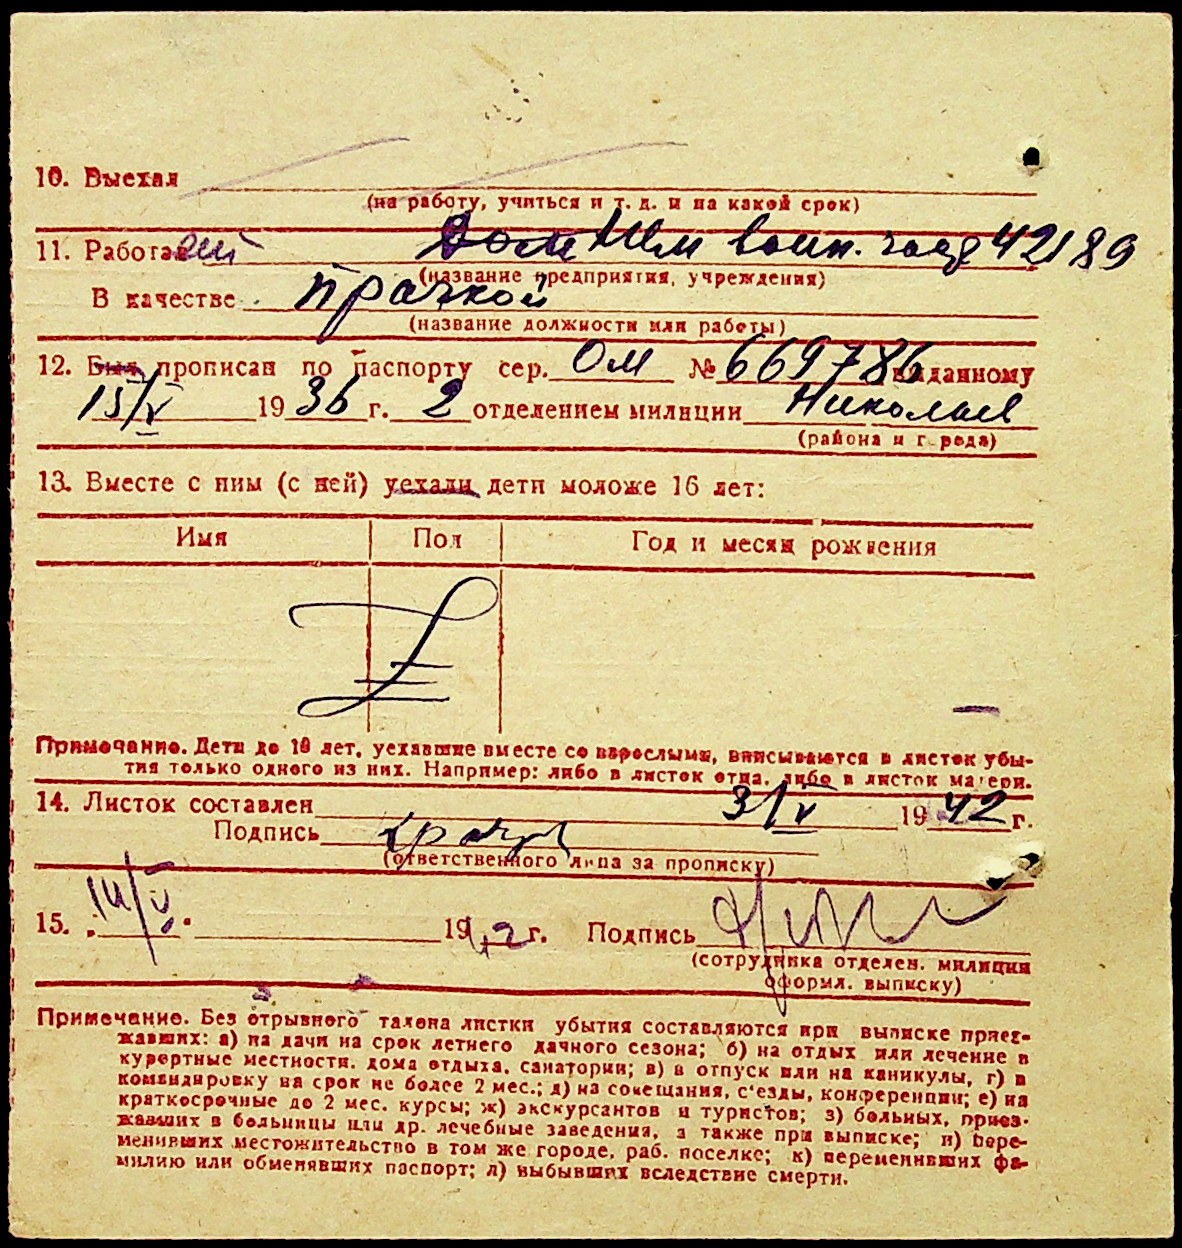 10. Выехал
(на работу, учиться и т. д. и на какой срок)
11. Работа воин. 42189
(название предприятия, учреждения)
В качестве прачкой
(название должности или работы)
12. Был прописан по паспорту сер. ОМ № 669786 выданному
15/V 1936 г. 2 отделением милиции Николаев
(района и города)
13. Вместе с ним (с ней) уехали дети моложе 16 лет:
Имя Пол Год и месяц рождения
Примечание. Дети до 16 лет, уехавшие вместе со взрослыми, вписываются в листок убы-
тия только одного из них. Например: либо в листок отца, либо в листок матери.
14. Листок составлен 3/V 1942 г.
Подпись
(ответственного лица за прописку)
15. 14/V 1942 г. Подпись
(сотрудника отделен. милиции
оформл. выписку)
Примечание. Без отрывного талона листки убытия составляются при выписке приез-
жавших: а) на дачи на срок летнего дачного сезона; б) на отдых или лечение в
курортные местности, дома отдыха, санатории; в) в отпуск или на каникулы, г) в
командировку на срок не более 2 мес.; д) на совещания, с'езды, конференции; е) на
краткосрочные до 2 мес. курсы; ж) экскурсантов и туристов; з) больных, приез-
жавших в больницы или др. лечебные заведения, а также при выписке; и) пере-
менивших местожительство в том же городе, раб. поселке; к) переменивших фа-
милию или обменявших паспорт; л) выбывших вследствие смерти.